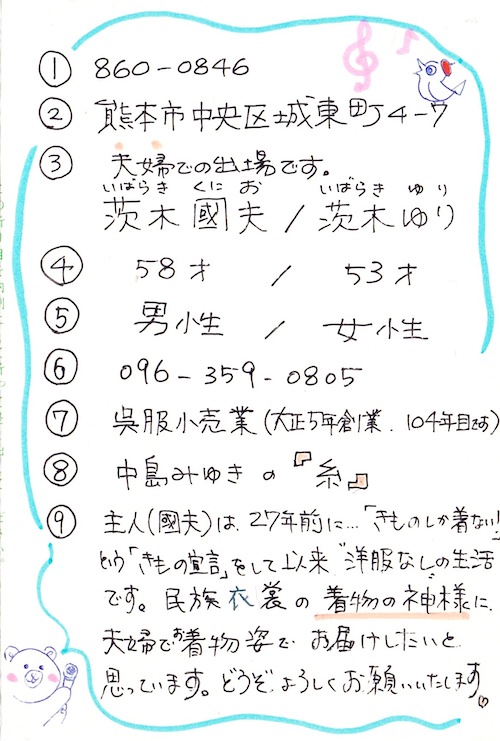 ① 860-0846
② 熊本市中央区城東町4-7
③ 夫婦での出場です。
いばらき くにお いばらき ゆり
茨木國夫 / 茨木ゆり
④ 58才 / 53才
⑤ 男性 / 女性
⑥ 096-359-0805
⑦ 呉服小売業(大正5年創業、104年目です)
⑧ 中島みゆきの『糸』
⑨ 主人(國夫)は、27年前に…「きものしか着ない!」
という「きもの宣言」をして以来“洋服なし”の生活
です。民族衣裳の着物の神様に、
夫婦でお着物姿でお届けしたいと
思っています。どうぞよろしくお願いいたします